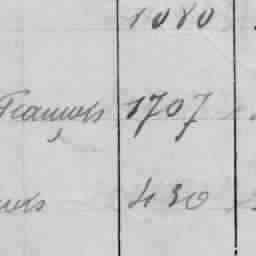 1080
François 1707
430